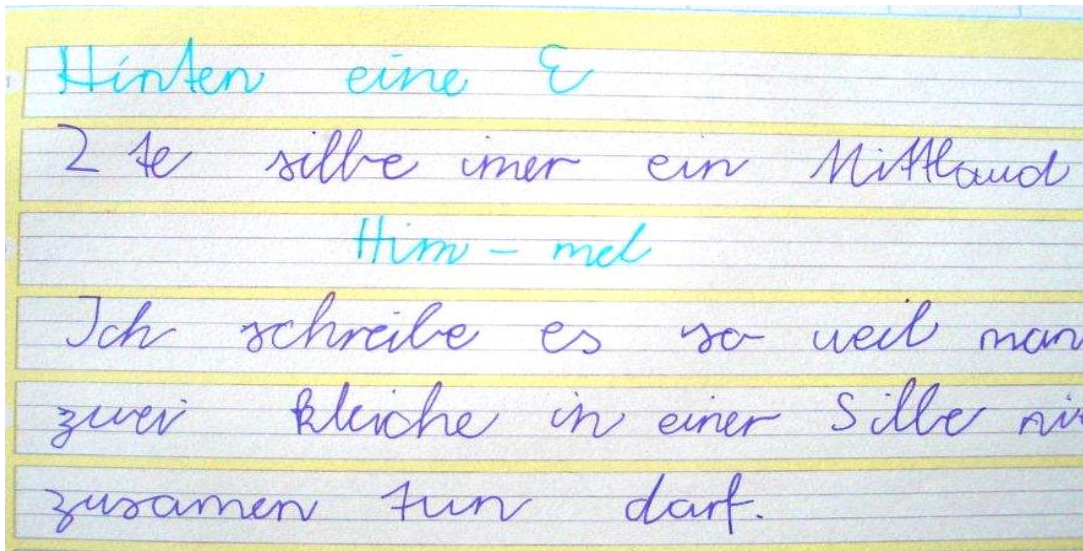 Hinten eine E
2 te silbe imer ein Mittlaud
Him - mel
Ich schreibe es so weil man
zwei kleiche in einer Silbe
zusamen tun darf.